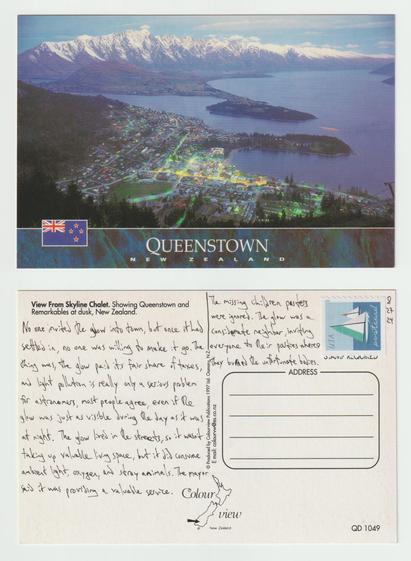 QUEENSTOWN
NEW ZEALAND
View From Skyline Chalet. Showing Queenstown and
Remarkables at dusk, New Zealand.
No one invited the glow into town, but once it had
settled in, no one was willing to make it go. The
thing was, the glow paid its fair share of taxes,
and light pollution is really only a serious problem
for astronomers, most people agree, even if the
glow was just as visible during the day as it was
at night. The glow lived in the streets, so it wasn't
taking up valuable living space, but it did consume
ambient light, oxygen, and stray animals. The mayor
said it was providing a valuable service.
The missing children posters
were ignored. The glow was a
considerate neighbor, inviting
everyone to their parties where
they burned the unfortunate bodies.
© Produced by Colourview Publications 1997 ltd. Oamaru, N.Z.
E mail: colourvw@es.co.nz
USA
postcard
STAMP REQUIRED
ADDRESS
Colour
view
© New Zealand
QD 1049